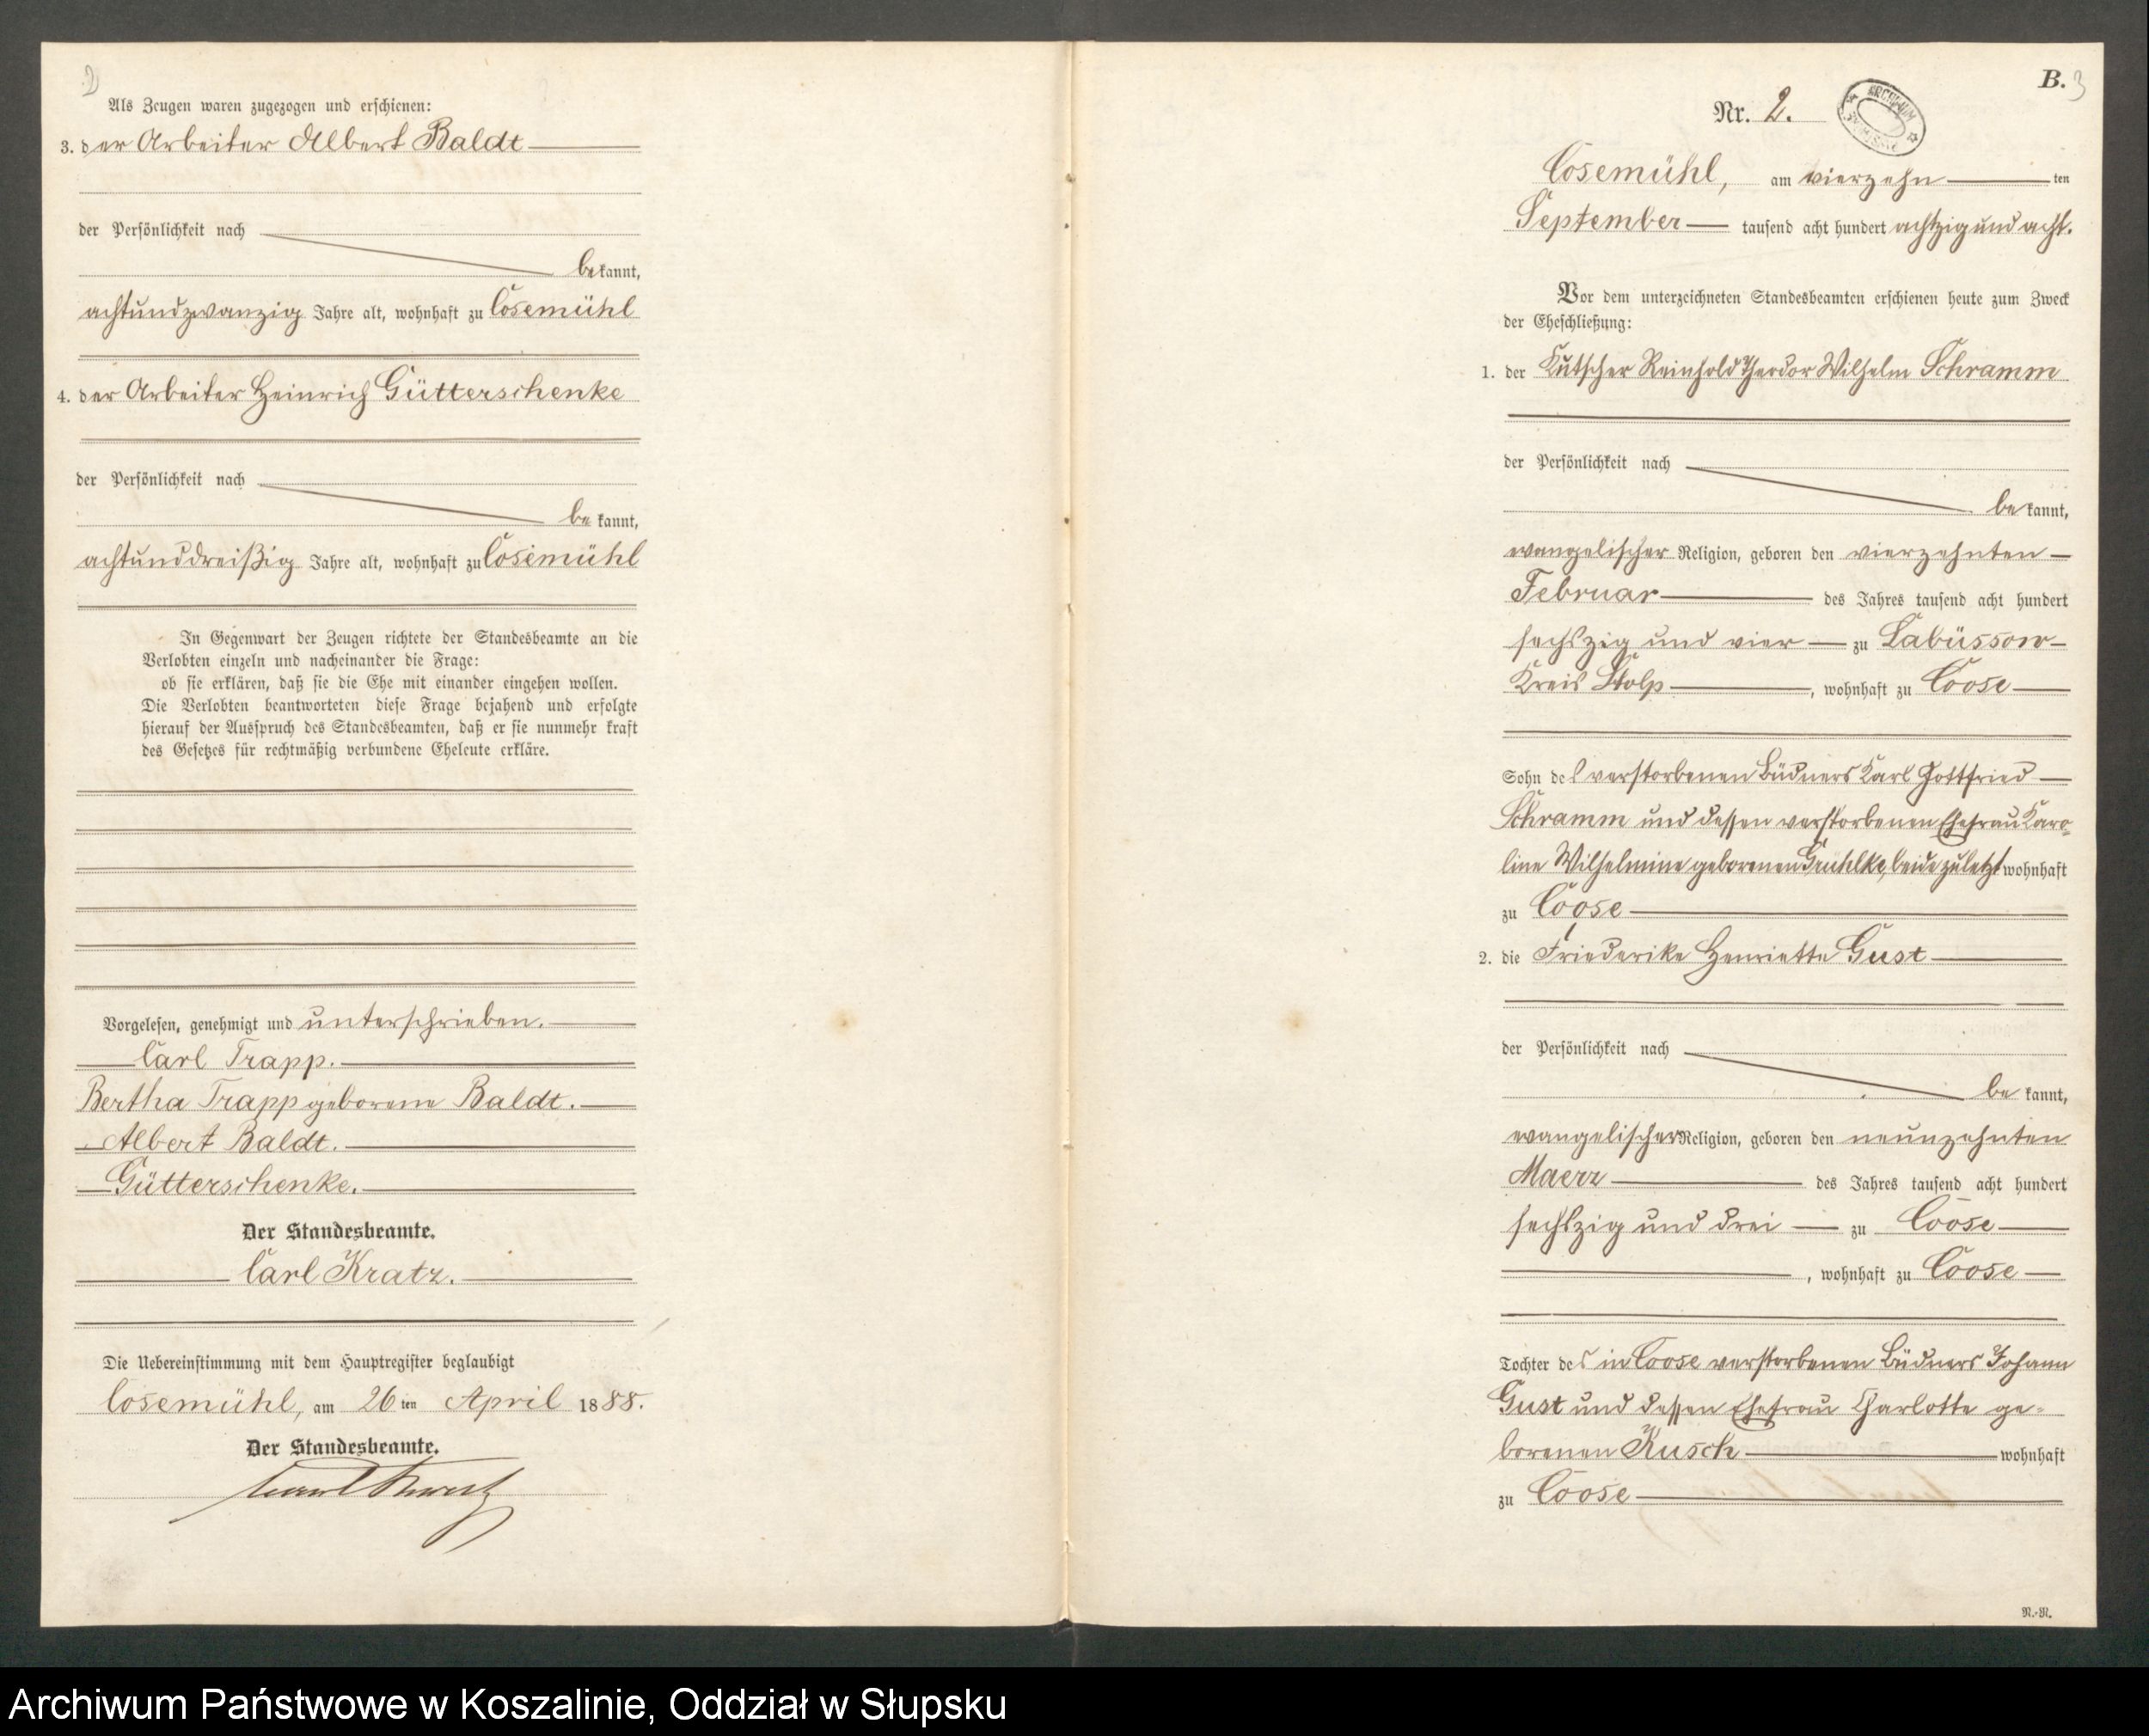 2
Als Zeugen waren zugezogen und erschienen:
3. der Arbeiter Albert Baldt
der Persönlichkeit nach
bekannt,
achtundzwanzig Jahre alt, wohnhaft zu Cosemühl
4. der Arbeiter Heinrich Gütterschenke
der Persönlichkeit nach
bekannt,
achtunddreißig Jahre alt, wohnhaft zu Cosemühl
In Gegenwart der Zeugen richtete der Standesbeamte an die
Verlobten einzeln und nacheinander die Frage:
ob sie erklären, daß sie die Ehe mit einander eingehen wollen.
Die Verlobten beantworteten diese Frage bejahend und erfolgte
hierauf der Ausspruch des Standesbeamten, daß er sie nunmehr kraft
des Gesetzes für rechtmäßig verbundene Eheleute erkläre.
Vorgelesen, genehmigt und unterschrieben.
Carl Trapp.
Bertha Trapp geborene Baldt.
Albert Baldt.
Gütterschenke.
Der Standesbeamte.
Carl Kratz.
Die Uebereinstimmung mit dem Hauptregister beglaubigt
Cosemühl, am 26 ten April 1888.
Der Standesbeamte.
Carl Kratz
B. 3
Nr. 2.
ARCHIWUM
Cosemühl, am vierzehn ten
September tausend acht hundert achtzig und acht.
Vor dem unterzeichneten Standesbeamten erschienen heute zum Zweck
der Eheschließung:
1. der Kutscher Reinhold Theodor Wilhelm Schramm
der Persönlichkeit nach
bekannt,
evangelischer Religion, geboren den vierzehnten
Februar des Jahres tausend acht hundert
sechszig und vier zu Labüssow
Kreis Stolp, wohnhaft zu Coose
Sohn des verstorbenen Büdners Karl Gottfried
Schramm und dessen verstorbenen Ehefrau Karo-
line Wilhelmine geborenen beide zuletzt wohnhaft
zu Coose
2. die Friederike Henriette Gust
der Persönlichkeit nach
bekannt,
evangelischer Religion, geboren den neunzehnten
Maerz des Jahres tausend acht hundert
sechszig und drei zu Coose
, wohnhaft zu Coose
Tochter des in Coose verstorbenen Büdners Johann
Gust und dessen Ehefrau Charlotte ge-
borenen Kusch wohnhaft
zu Coose
N.-N.
Archiwum Państwowe w Koszalinie, Oddział w Słupsku